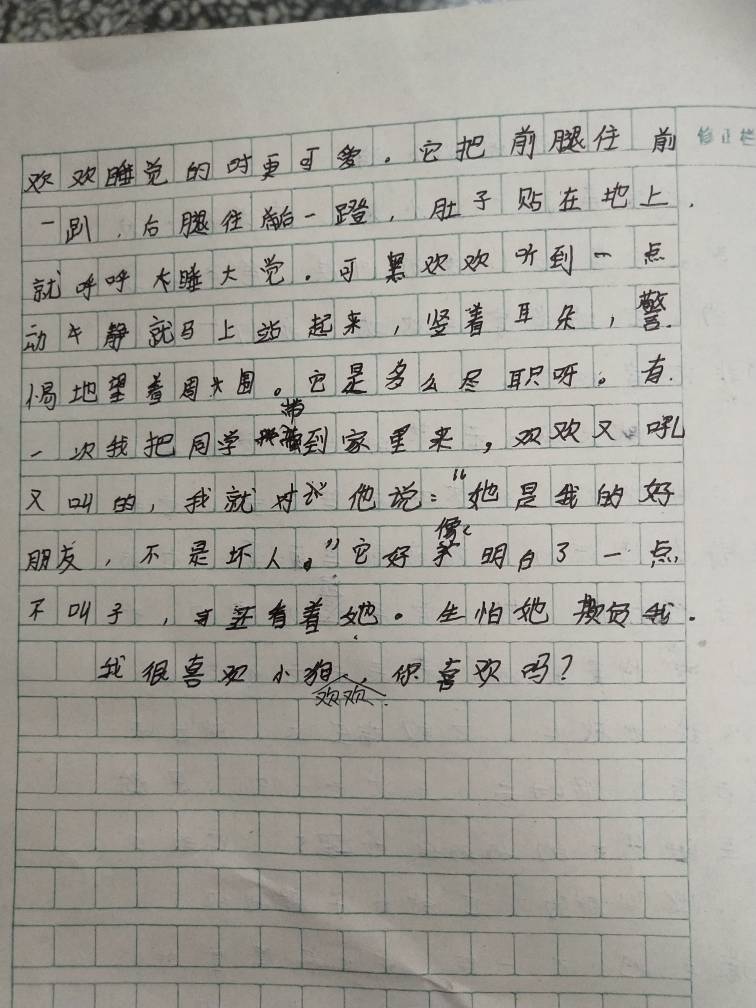 欢欢睡觉的时更可爱。它把前腿住前 修正栏
一趴,后腿往后一蹬,肚子贴在地上,
就呼呼大睡大觉。可黑欢欢听到一点
动静就马上站起来,竖着耳朵,警
惕地望着周围。它是多么尽职呀。有
一次我把同学带到家里来,欢欢又吼
又叫的,我就对他说:“她是我的好
朋友,不是坏人。”它好像明白了一点,
不叫了,还看着她。生怕她欺负我。
我很喜欢小狗欢欢,你喜欢吗?